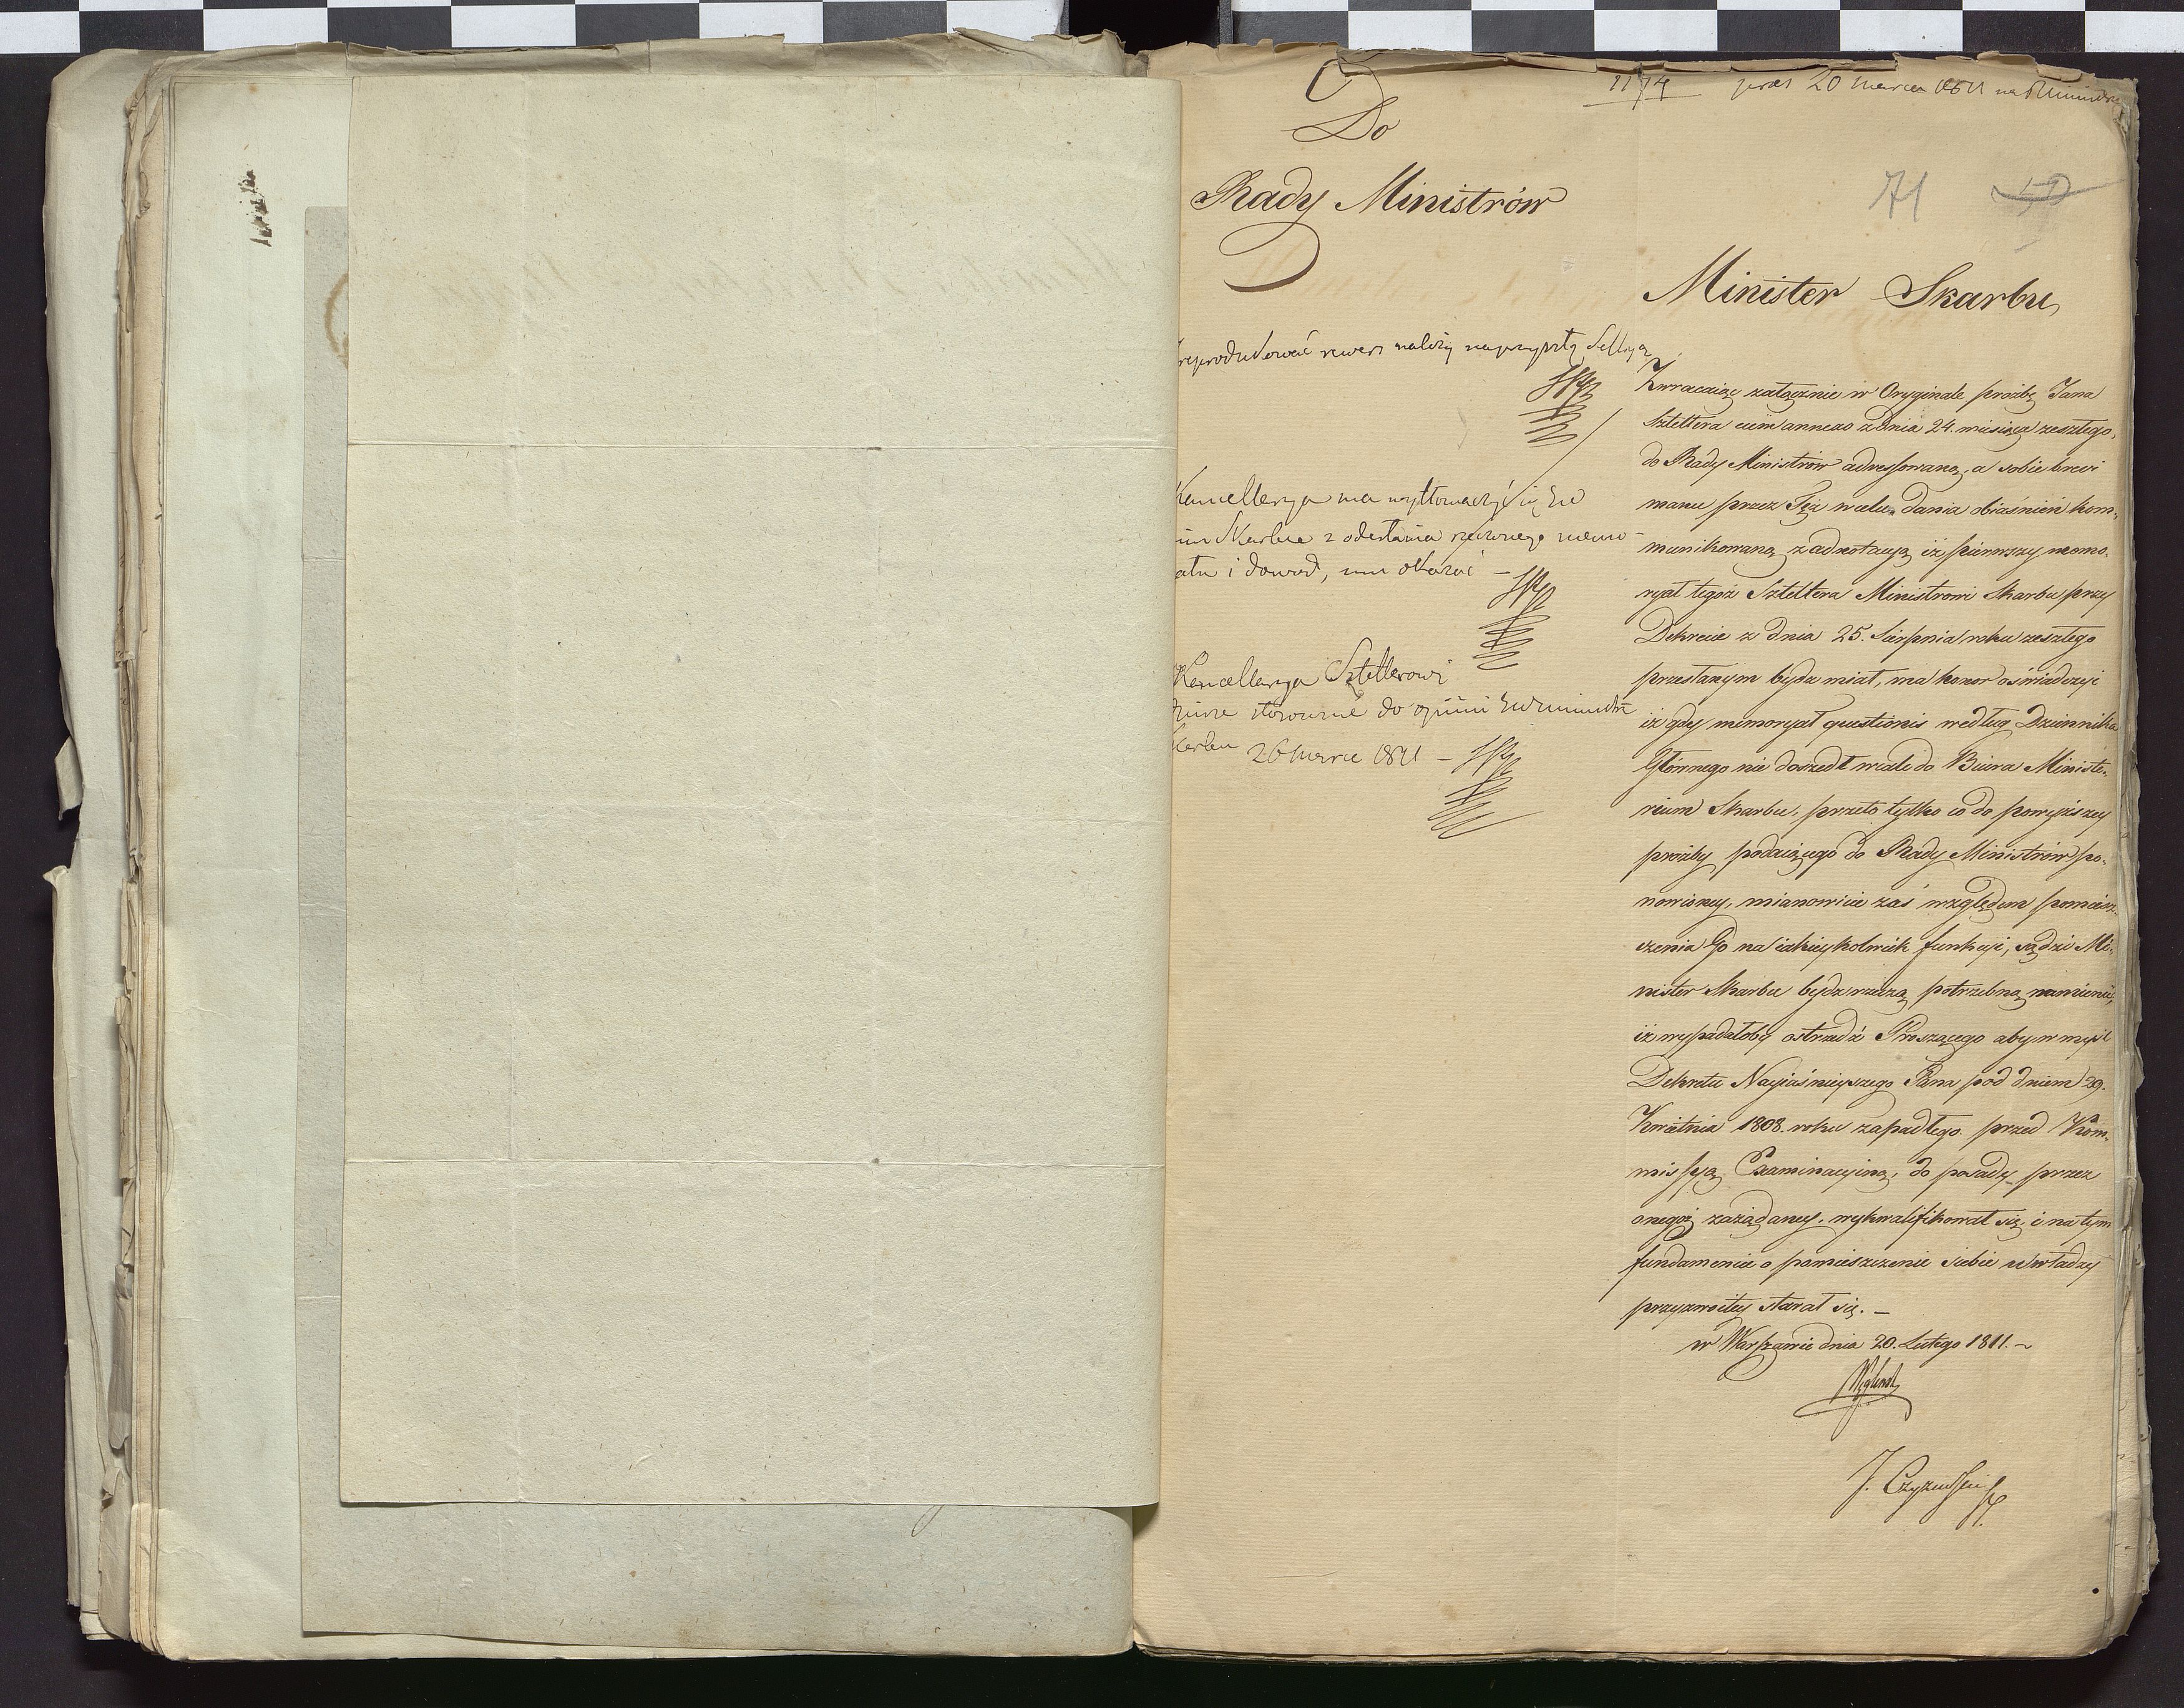 1174 pres 20 marca 1811 na
Do
Rady Ministrów
71
Minister Skarbu
należy
Kancellarya ma wytłomaczyć się
Skarbu z odesłania
i dowod, mu okazać —
Kancellarya Sztetterowi
stosownie do opinii
26 marca 1811 —
Zwracaiąc załącznie w Oryginale prozbę Jana
Sztettera cum annexo z dnia 24. miesiąca zeszłego,
do Rady Ministrów adressowaną, a sobie brevi
manu przez Tęż w celu dania obiaśnień kom„
munikowaną z adnotacyą iż pierwszy memo„
ryał tegoż Sztettera Ministrowi Skarbu przy
Dekrecie z dnia 25. Sierpnia roku zeszłego
przesłanym bydz miał, ma honor oświadczyć
iż gdy memoryał questionis według Dziennika
Głównego nie doszedł wcale do Biura Ministe„
rium Skarbu, przeto tylko co do powyższey
prozby podaiącego do Rady Ministrów po„
nowioney, mianowicie zaś względem pomiesz„
czenia Go na iakieykolwiek funkcyi, sądzi Mi„
nister Skarbu bydz rzeczą potrzebną namienić,
iż wypadałoby ostrzedz Proszącego aby w myśl
Dekretu Nayiaśnieyszego Pana pod dniem 29.
Kwietnia 1808. roku zapadłego przed Kom„
missyą Examinacyiną, do posady przez
onegoż zażądaney, wykwalifikował się, i na tym
fundamencie o pomieszczenie siebie u władzy
przyzwoitey starał się. —
w Warszawie dnia 20. Lutego 1811. ~
Węgleński
J. Czyżewski